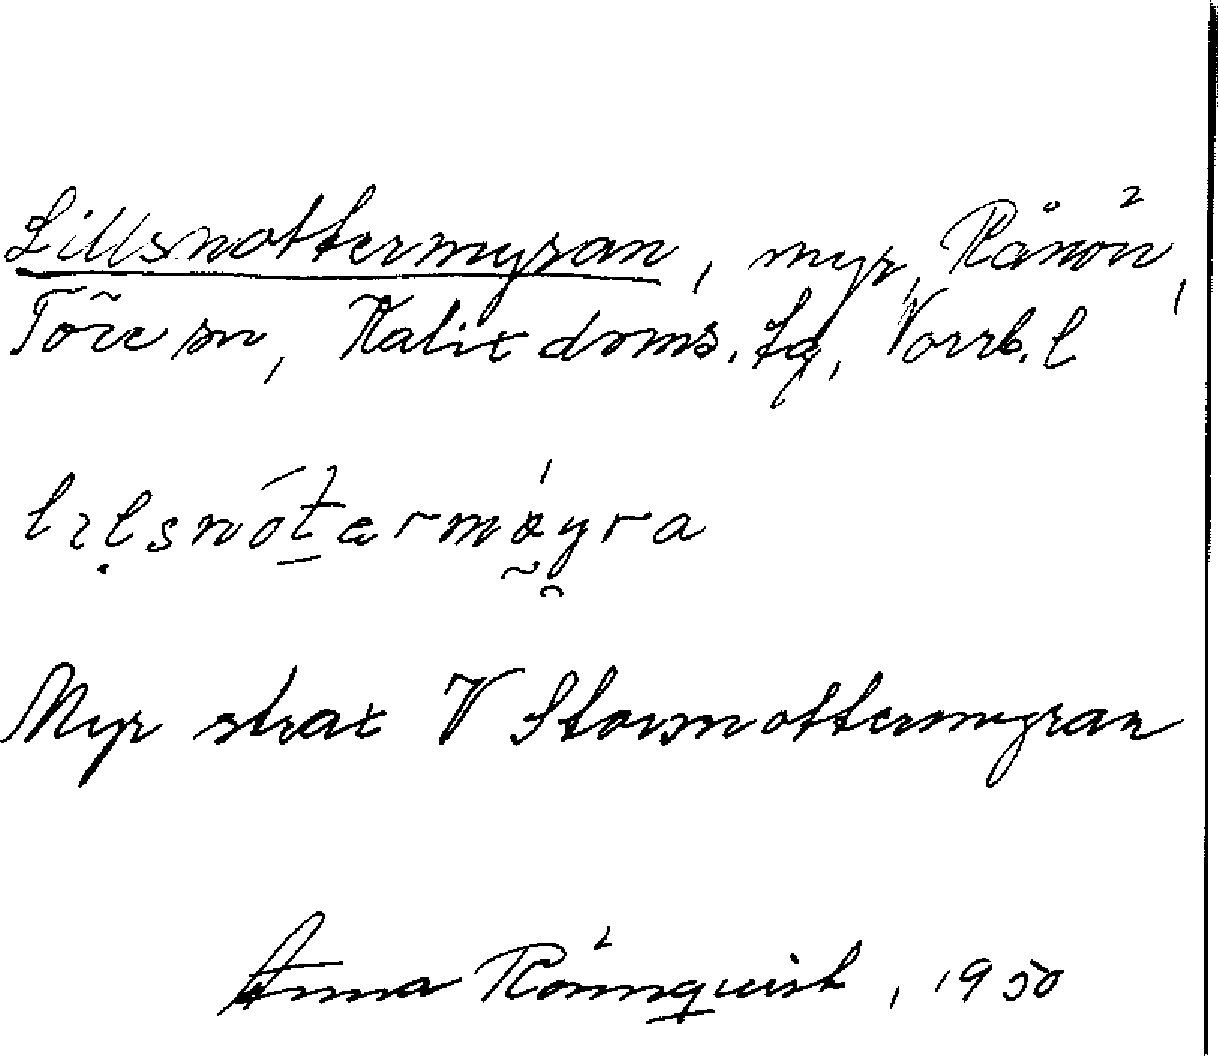 Lillsnottermyran, myr, Rånön,
Töre sn, Kalix doms. lg, Norrb. l
Myr strax V Storsnottermyran
Anna Rönnquist, 1950